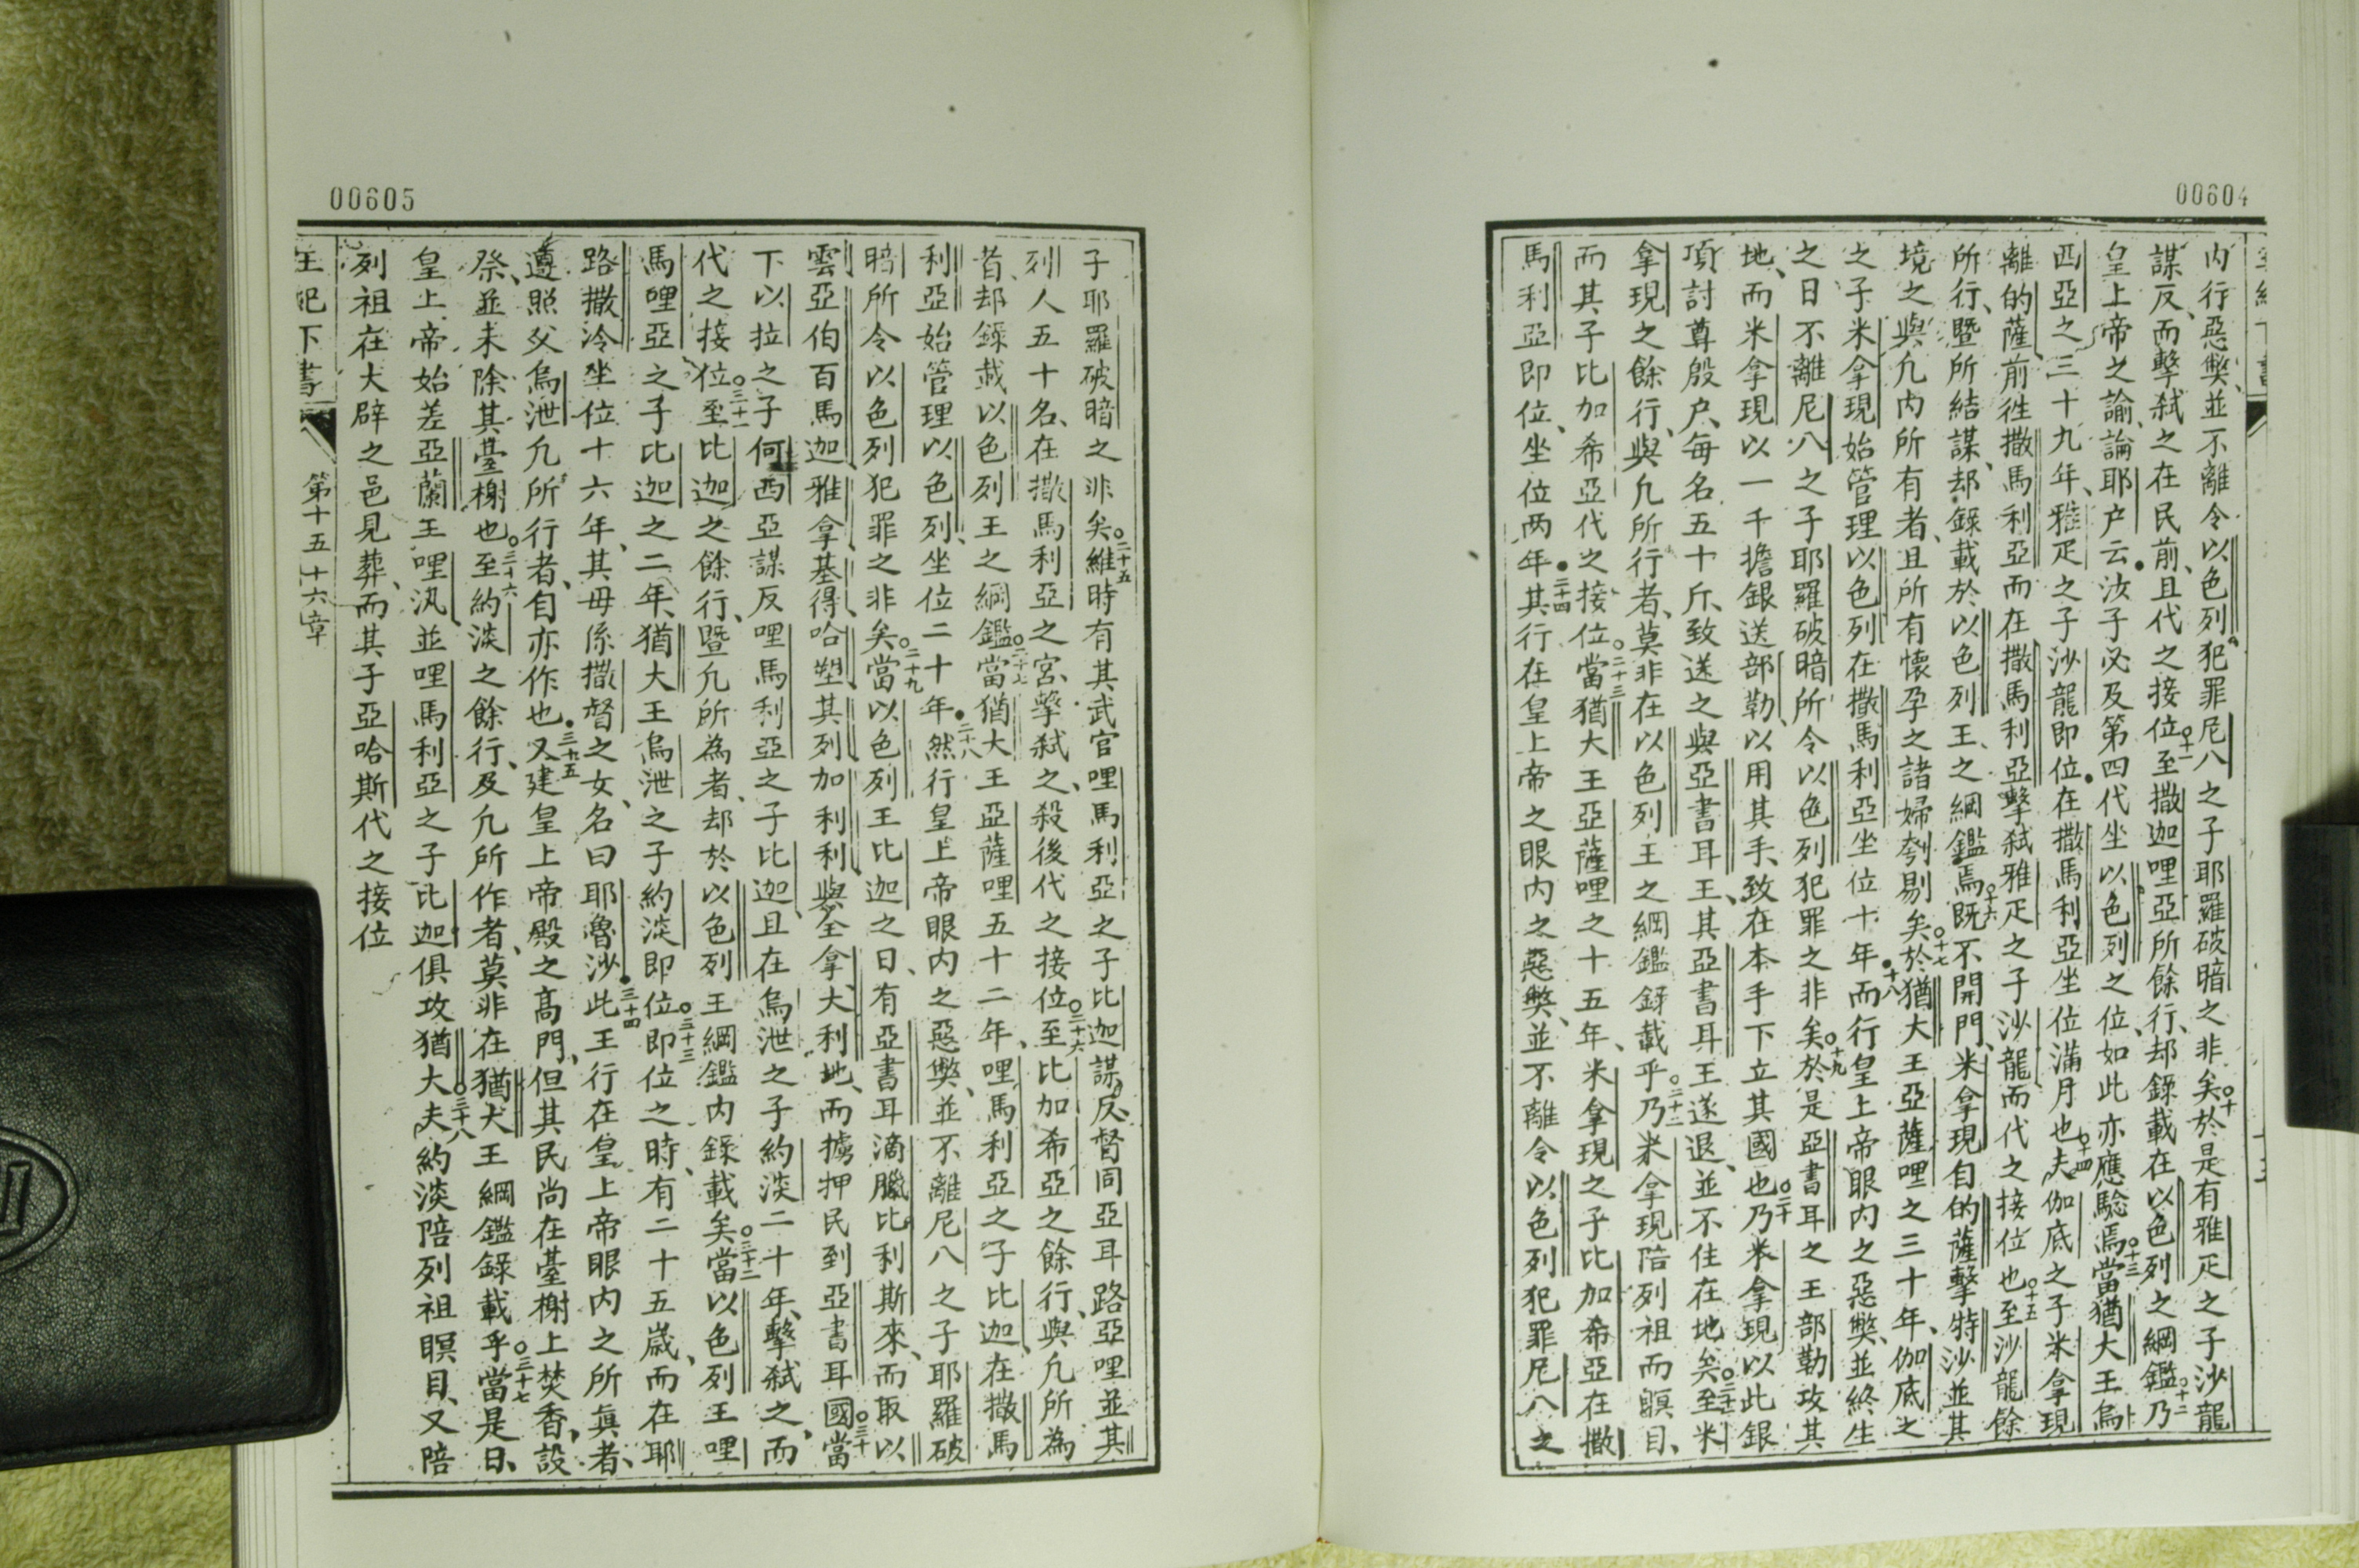 00604
内行惡獘、並不離令以色列犯罪尼八之子耶羅破暗之非矣○十於是有雅疋之子沙龍
謀反、而擊弑之在民前、且代之接位○十一至撒迦哩亞所餘行、却錄載在以色列之綱鑑○十二乃
皇上帝之諭、論耶户云●汝子必及第四代坐以色列之位、如此亦應驗焉○十三當猶大王烏
西亞之三十九年、雅疋之子沙龍即位●在撒馬利亞坐位滿月也○十四夫伽底之子米拿現
離的薩前徃撒馬利亞而在撒馬利亞擊弑雅疋之子沙龍而代之接位也○十五至沙龍餘
所行、暨所結謀、却錄載於以色列王、之綱鑑焉○十六既不開門、米拿現自的薩擊特沙並其
境之與凢内所有者、且所有懷孕之諸婦刳剔矣○十七於猶大王亞薩哩之三十年、伽底之
之子米拿現始管理以色列在撒馬利亞坐位十年●十八而行皇上帝眼内之惡獘、並終生
之日不離尼八之子耶羅破暗所令以色列犯罪之非矣○十九於是亞書耳之王部勒攻其
地、而米拿現以一千擔銀送部勒、以用其手、致在本手下立其國也○二十乃米拿現以此銀
項討尊殷户、每名五十斤、致送之與亞書耳王、其亞書耳王遂退、並不住在地矣○二十一至米
拿現之餘行、與凢所行者、莫非在以色列王之綱鑑錄載乎○二十二乃米拿現陪列祖而瞑目、
而其子比加希亞代之接位○二十三當猶大王亞薩哩之十五年、米拿現之子比加希亞在撒
馬利亞即位、坐位两年●二十四其行在皇上帝之眼内之惡獘、並不離令以色列犯罪尼八之
00605
子耶羅破暗之非矣○二十五維時有其武官哩馬利亞之子比迦謀反、督同亞耳路亞哩並其
列人五十名、在撒馬利亞之宮、擊弑之、殺後代之接位○二十六至比加希亞之餘行、與凢所為
者、却錄載以色列王之綱鑑○二十七當猶大王亞薩哩五十二年、哩馬利亞之子比迦、在撒馬
利亞始管理以色列、坐位二十年●二十八然行皇上帝眼内之惡獘、並不離尼八之子耶羅破
暗所令以色列犯罪之非矣○二十九當以色列王比迦之日、有亞書耳滴臘比利斯來、而取以
雲亞伯百馬迦雅拿基得哈塑其列加利利與全拿、大利地、而擄押民到亞書耳國○三十當
下以拉之子何西亞謀反哩馬利亞之子比迦、且在烏泄之子約淡二十年、擊弑之、而
代之接位○三十一至比迦之餘行、暨凢所為者、却於以色列王綱鑑内錄載矣○三十二當以色列王哩
馬哩亞之子比迦之二年、猶大王烏泄之子約淡即位○三十三即位之時、有二十五歲、而在耶
路撒冷坐位十六年、其母係撒督之女、名曰耶魯沙●三十四此王行在皇上帝眼内之所眞者、
遵照父烏泄凢所行者、自亦作也●三十五又建皇上帝殿之高門、但其民尚在臺榭上焚香、設
祭、並未除其臺榭也○三十六至約淡之餘行、及凢所作者、莫非在猶大王綱鑑錄載乎○三十七當是日、
皇上帝始差亞蘭王哩汛並哩馬利亞之子比迦俱攻猶大○三十八夫約淡陪列祖瞑目、又陪
列祖在大辟之邑見葬、而其子亞哈斯代之接位
王紀下書 第十五十六章